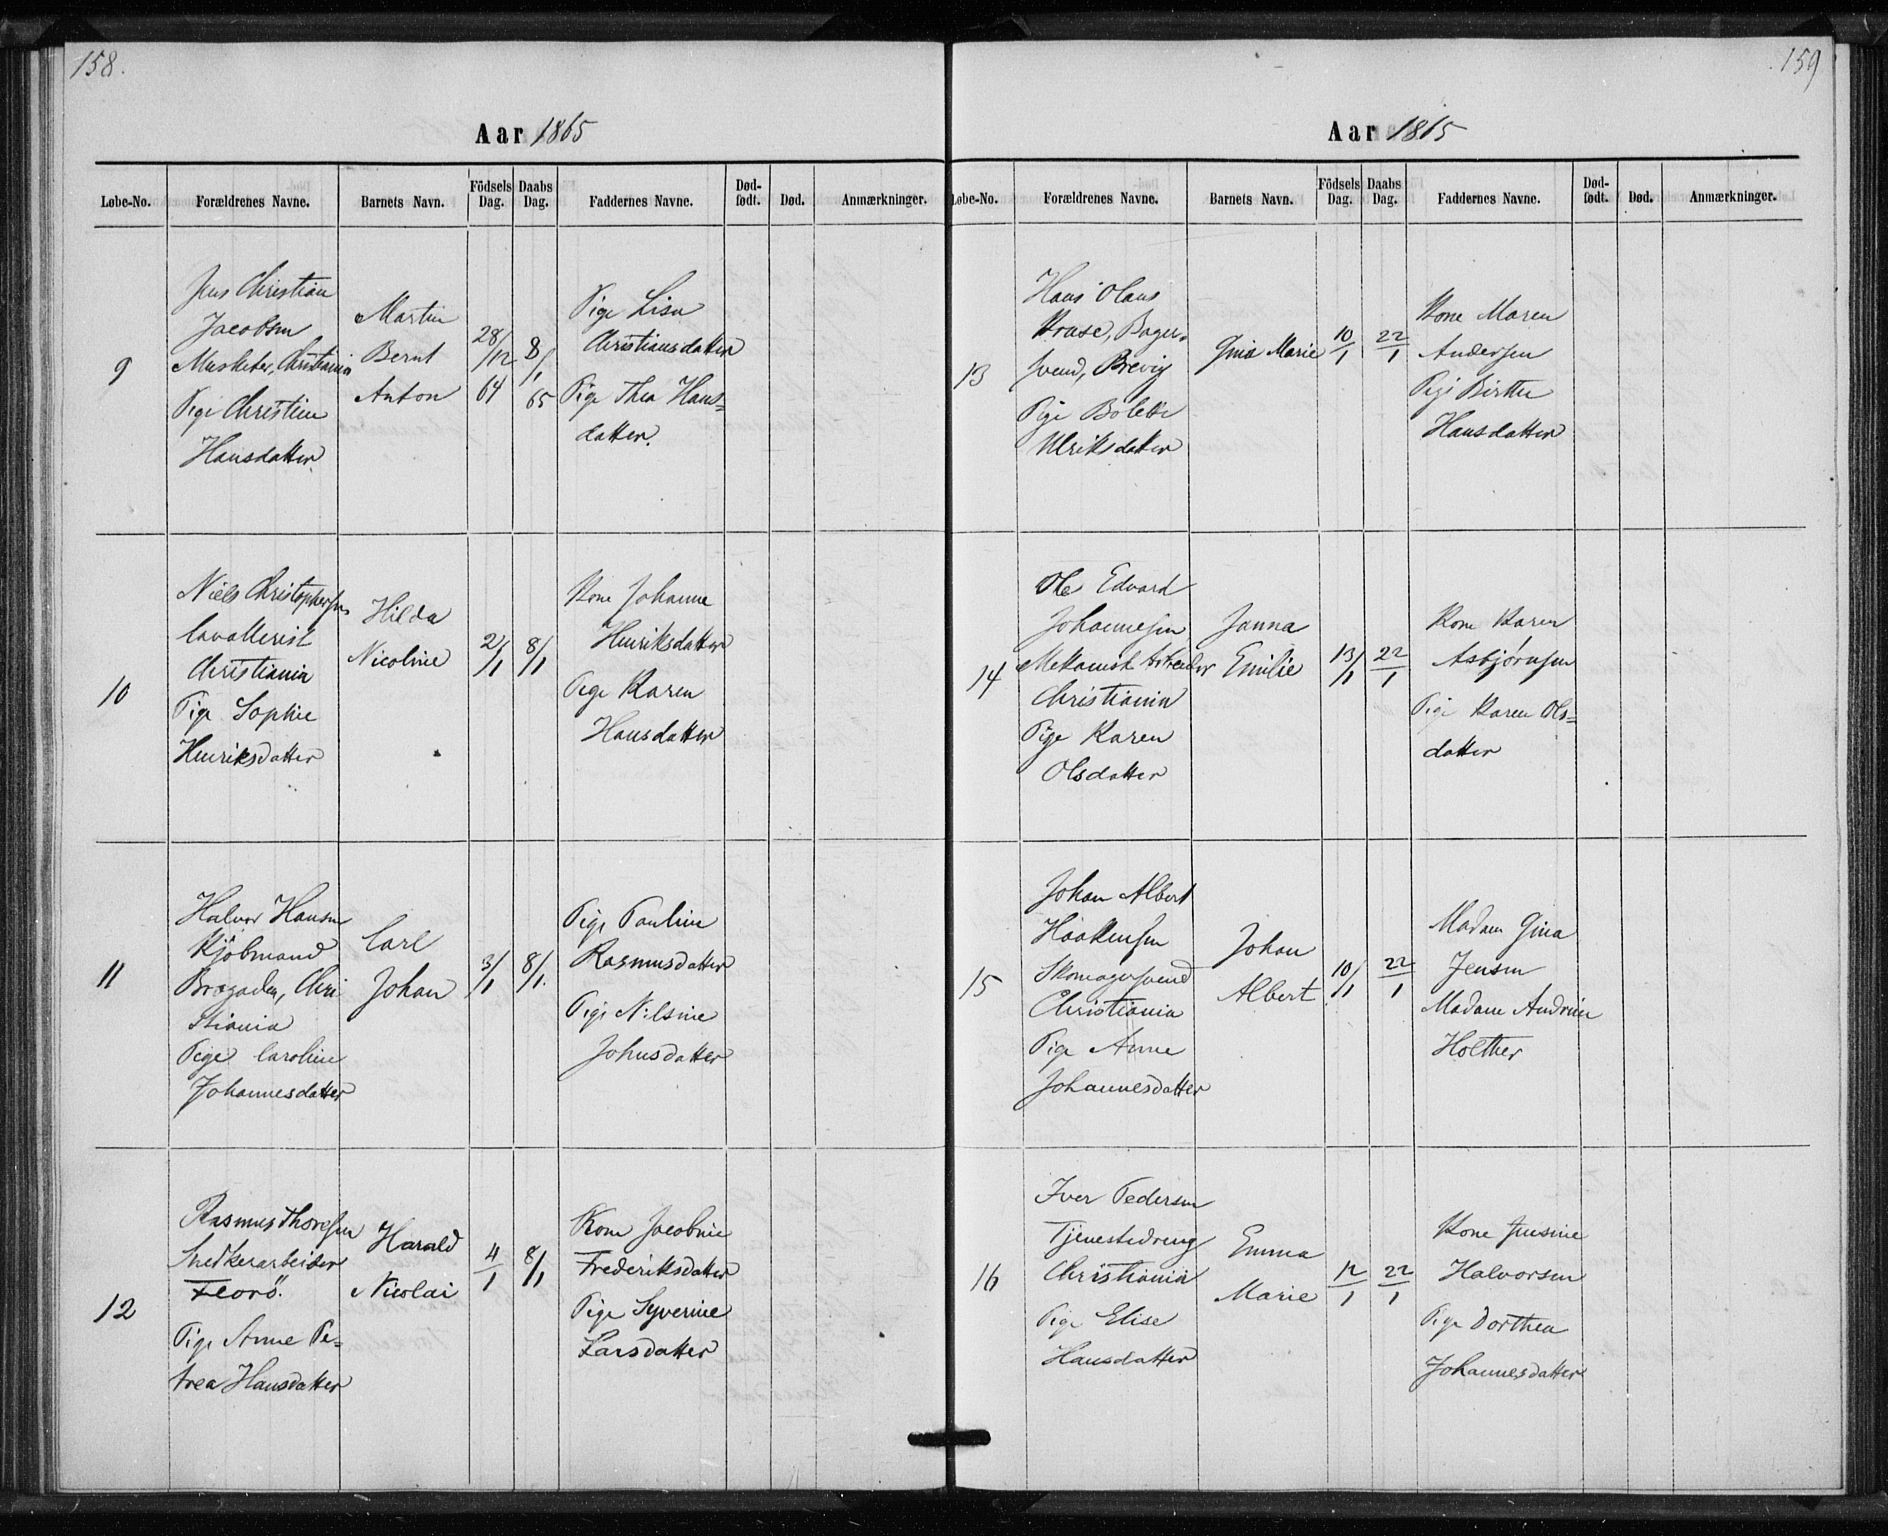 158.
Aar 1865
Løbe-No. Forældrenes Navne. Barnets Navn. Födsels Dag. Daabs Dag. Faddernes Navne. Død-födt. Død. Anmærkninger.
9
Jens Christian
Jacobsen
Musketer, Christiania
Pige Christine
Hansdatter
Martin
Bernt
Anton
28/12
64
8/1
65
Pige Lisa
Christiansdatter
Pige Thea Hans=
datter.
10
Niels Christophersen
Cavallerist
Christiania
Pige Sophie
Henriksdatter
Hilda
Nicoline
2/1
8/1
Kone Johanne
Henriksdatter
Pige Karen
Hansdatter
11
Halvor Hansen
Kjöbmand
Brogaden, Chri
stiania
Pige Caroline
Johannesdatter
Carl
Johan
3/1
8/1.
Pige Pauline
Rasmusdatter
Pige Nilsine
Johnsdatter
12
Rasmus Thoresen
Snedkerarbeider
Florö.
Pige Anne Pe=
trea Hansdatter
Harald
Nicolai
4/1
8/1
Kone Jacobine
Frederiksdatter
Pige Syverine
Larsdatter
159
Aar 1865
Løbe-No. Forældrenes Navne. Barnets Navn. Födsels Dag. Daabs Dag. Faddernes Navne. Død-födt. Død. Anmærkninger.
13
Hans Olaus
Kruse, Bager=
svend, Brevig
Pige Bolette
Ulriksdatter
Gina Marie
10/1
22/1
Kone Maren
Andersen
Pige Birthe
Hansdatter
14
Ole Edvard
Johannesen
Mekanisk Arbeider
Christiania
Pige Karen
Olsdatter
Janna
Emilie
13/1
22/1
Kone Karen
Asbjørnsen
Pige Karen Ols=
datter
15
Johan Albert
Haakensen
Skomagersvend
Christiania
Pige Anne
Johannesdatter
Johan
Albert
10/1
22/1
Madam Gina
Jensen
Madam Andrine
Holther
16
Iver Pedersen
Tjenestedreng
Christiania
Pige Elise
Hansdatter
Emma
Marie
12/1
22/1
Kone Jensine
Halvorsen
Pige Dorthea
Johannesdatter